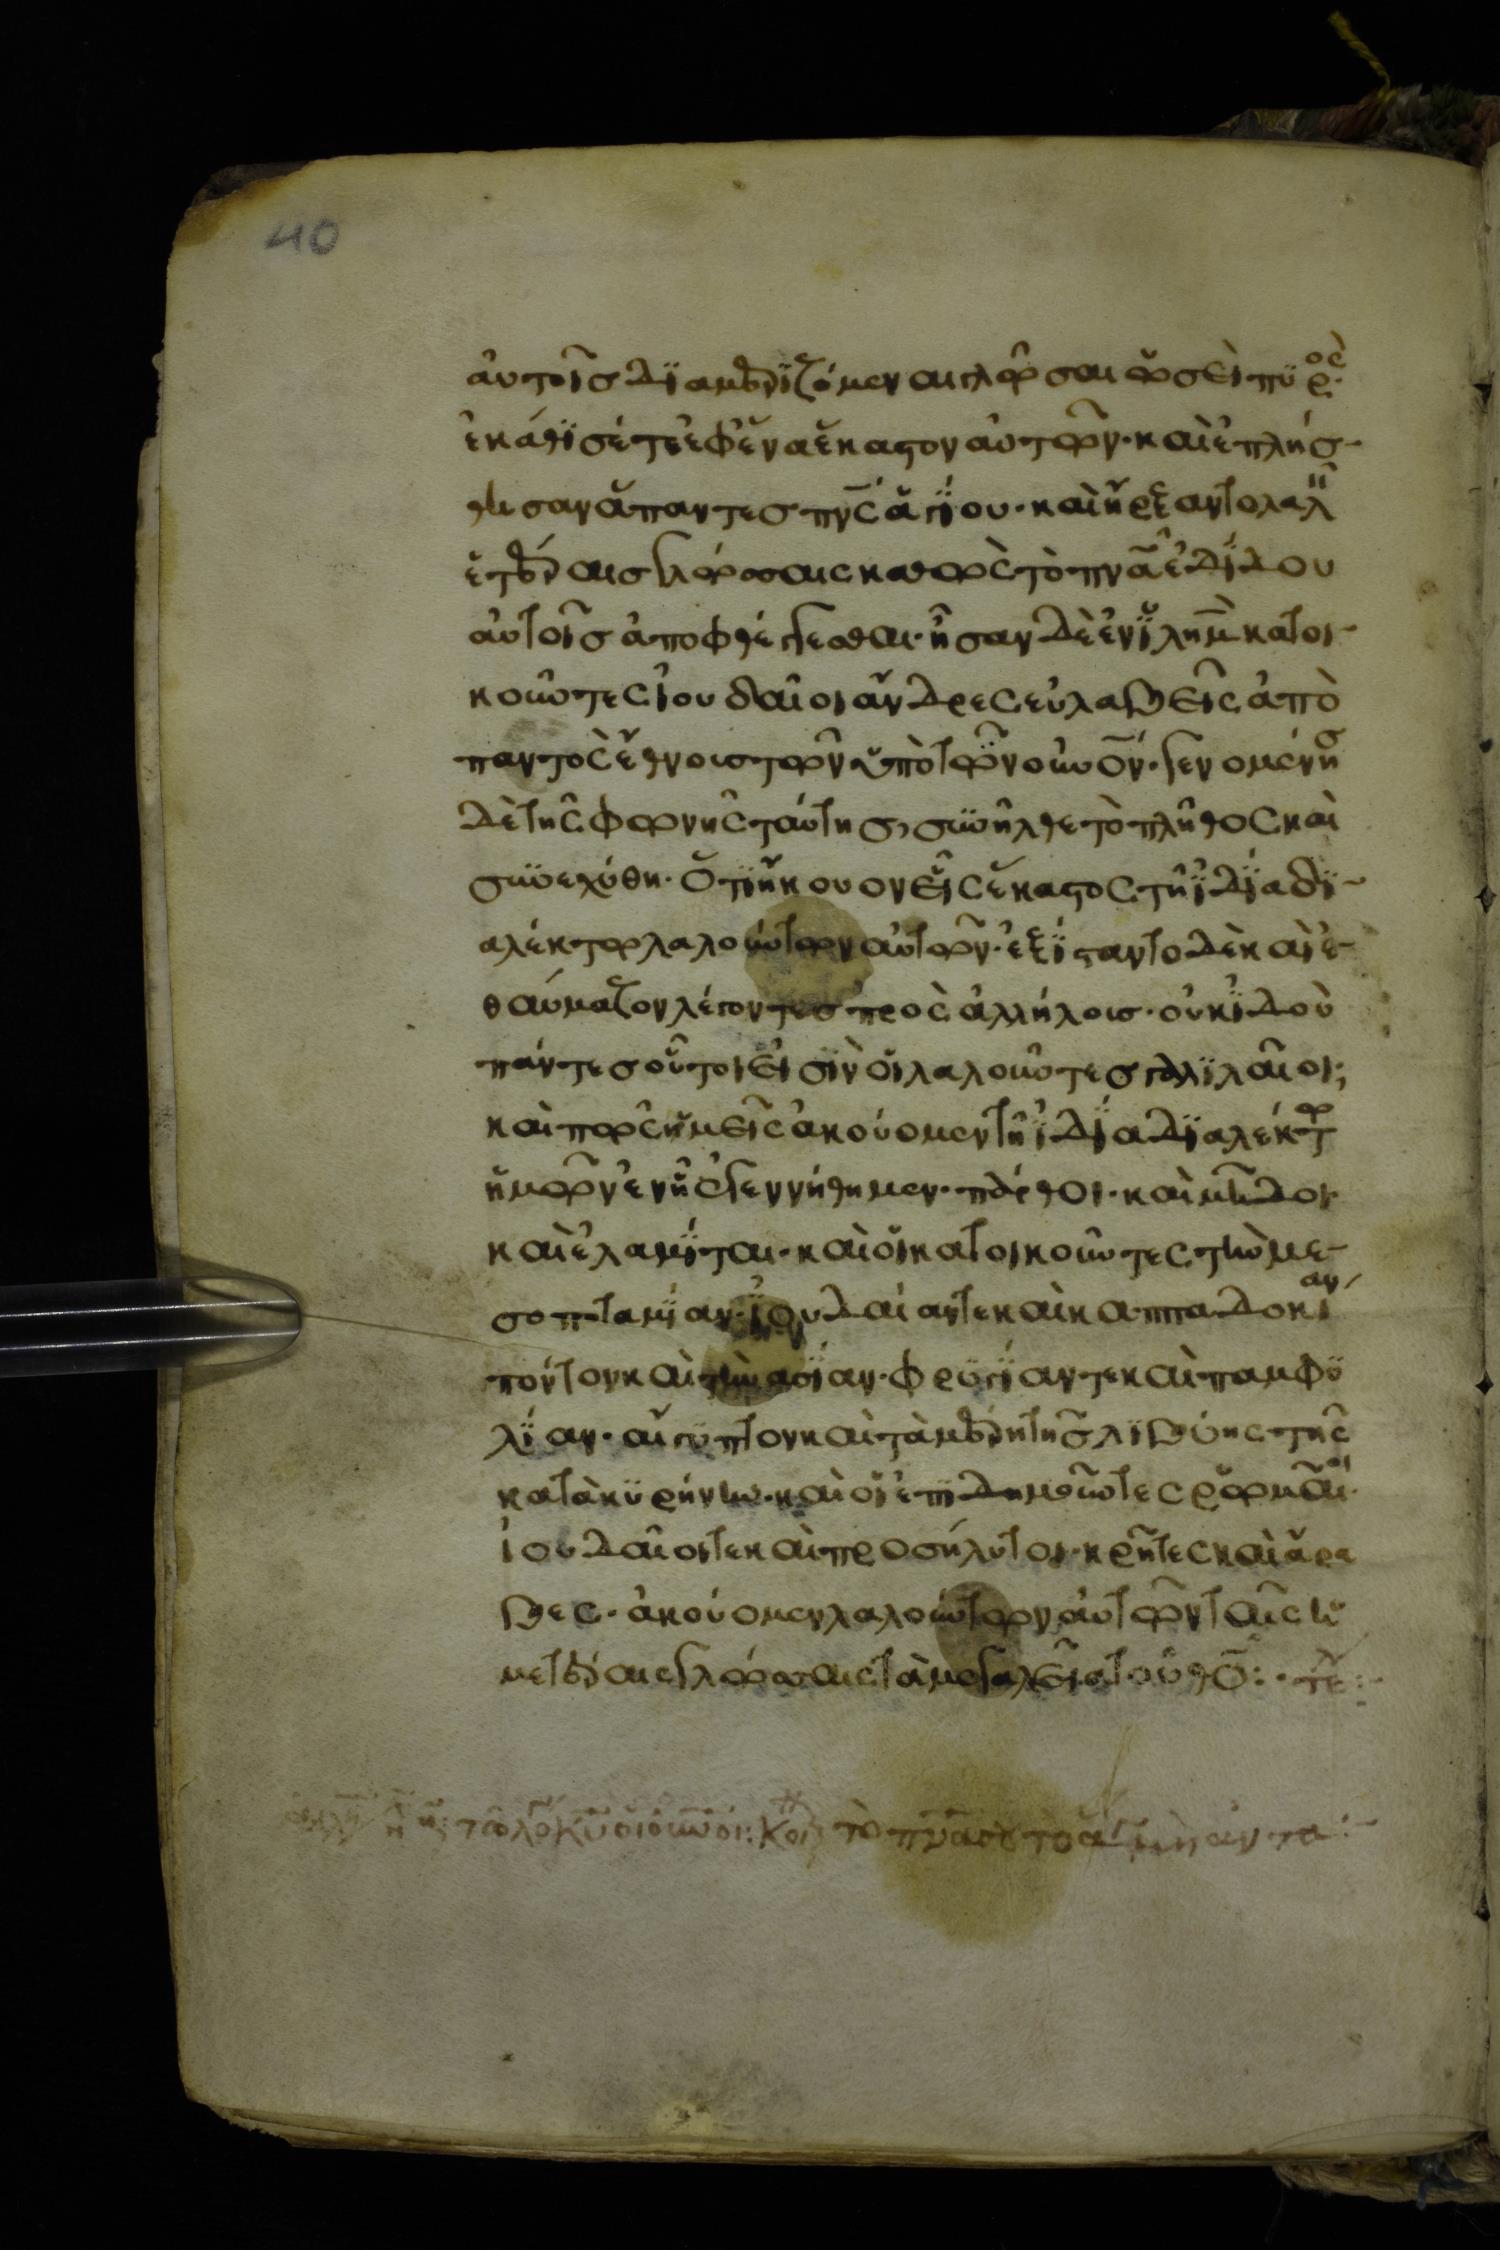 40
αὐτοῖς διαμεριζόμεναι γλῶσσαι ὡσεὶ πυρὸς.
ἐκάθϊσέ τε ἐφ' ἕνα ἕκαστον αὐτῶν· καὶ ἐπλήσ-
θησαν ἅπαντες πνς ἁγίου· καὶ ἤρξαντο λαλεῖ
ἑτέραις γλώσσαις καθὼς τὸ πνα ἐδίδου
αὐτοῖς ἀποφθέγγεσθαι· ἦσαν δὲ ἐν ϊλημ κατοι-
κοῦντες ἰουδαῖοι ἄνδρες εὐλαβεῖς ἀπὸ
παντὸς ἔθνους τῶν ὑπὸ τῶν οὐνόν· γενομένης
δὲ τῆς φωνῆς ταύτης, συνῆλθε τὸ πλῆθος καὶ
συνεχύθη· ὅτι ἤκουον εἷς ἕκαστος τῆ ἰδία δϊ-
αλέκτω λαλούντων αὐτῶν· ἐξίσταντο δὲ καὶ ἐ-
θαύμαζον λέγοντες πρὸς ἀλλήλους· οὐκ ἰδοὺ
πάντες οὗτοι εἰσὶν οἱ λαλοῦντες γαλιλαῖοι;
καὶ πῶς ἡμεῖς ἀκούομεν τῆ ἰδία διαλέκτω
ἡμῶν ἐν ἧ ἐγεννήθημεν· πάρθοι· καὶ μῆδοι·
καὶ ἐλαμίται· καὶ οἱ κατοικοῦντες τὴν με-
σοποταμίαν· ἰουδαίαν τε καὶ καππαδοκίαν
πόντον καὶ τὴν ασίαν· φρυγίαν τε καὶ παμφυ
λίαν· αἴγυπτον καὶ τὰ μέρη τῆς λιβύης τῆς
κατὰ κυρήνην· καὶ οἱ ἐπιδημοῦντες ῥωμαῖοι·
ἰουδαῖοι τε καὶ προσήλυτοι· κρῆτες καὶ ἄρα
βες· ἀκούομεν λαλούντων αὐτῶν ταῖς ἡ
μετέραις γλώσσαις τὰ μεγαλεῖα τοῦ θῦ:· τε:
τὸ πνα σου τὸ